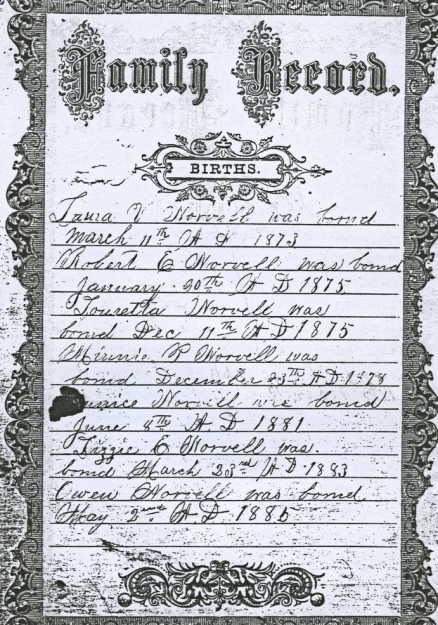 Family Record.
BIRTHS.
Laura V Norvell was bornd
March 11th A D 1873
Robert E Norvell was bornd
January 20th A D 1875
Louretta Norvell was
bornd Dec 11th A D 1875
Minnie P Norvell was
bornd December 25th A D 1878
Norvell was bornd
June 4th A D 1881
Lizzie C Norvell was.
bornd March 23rd A D 1883
Owen Norvell was bornd
May 2nd A D 1885